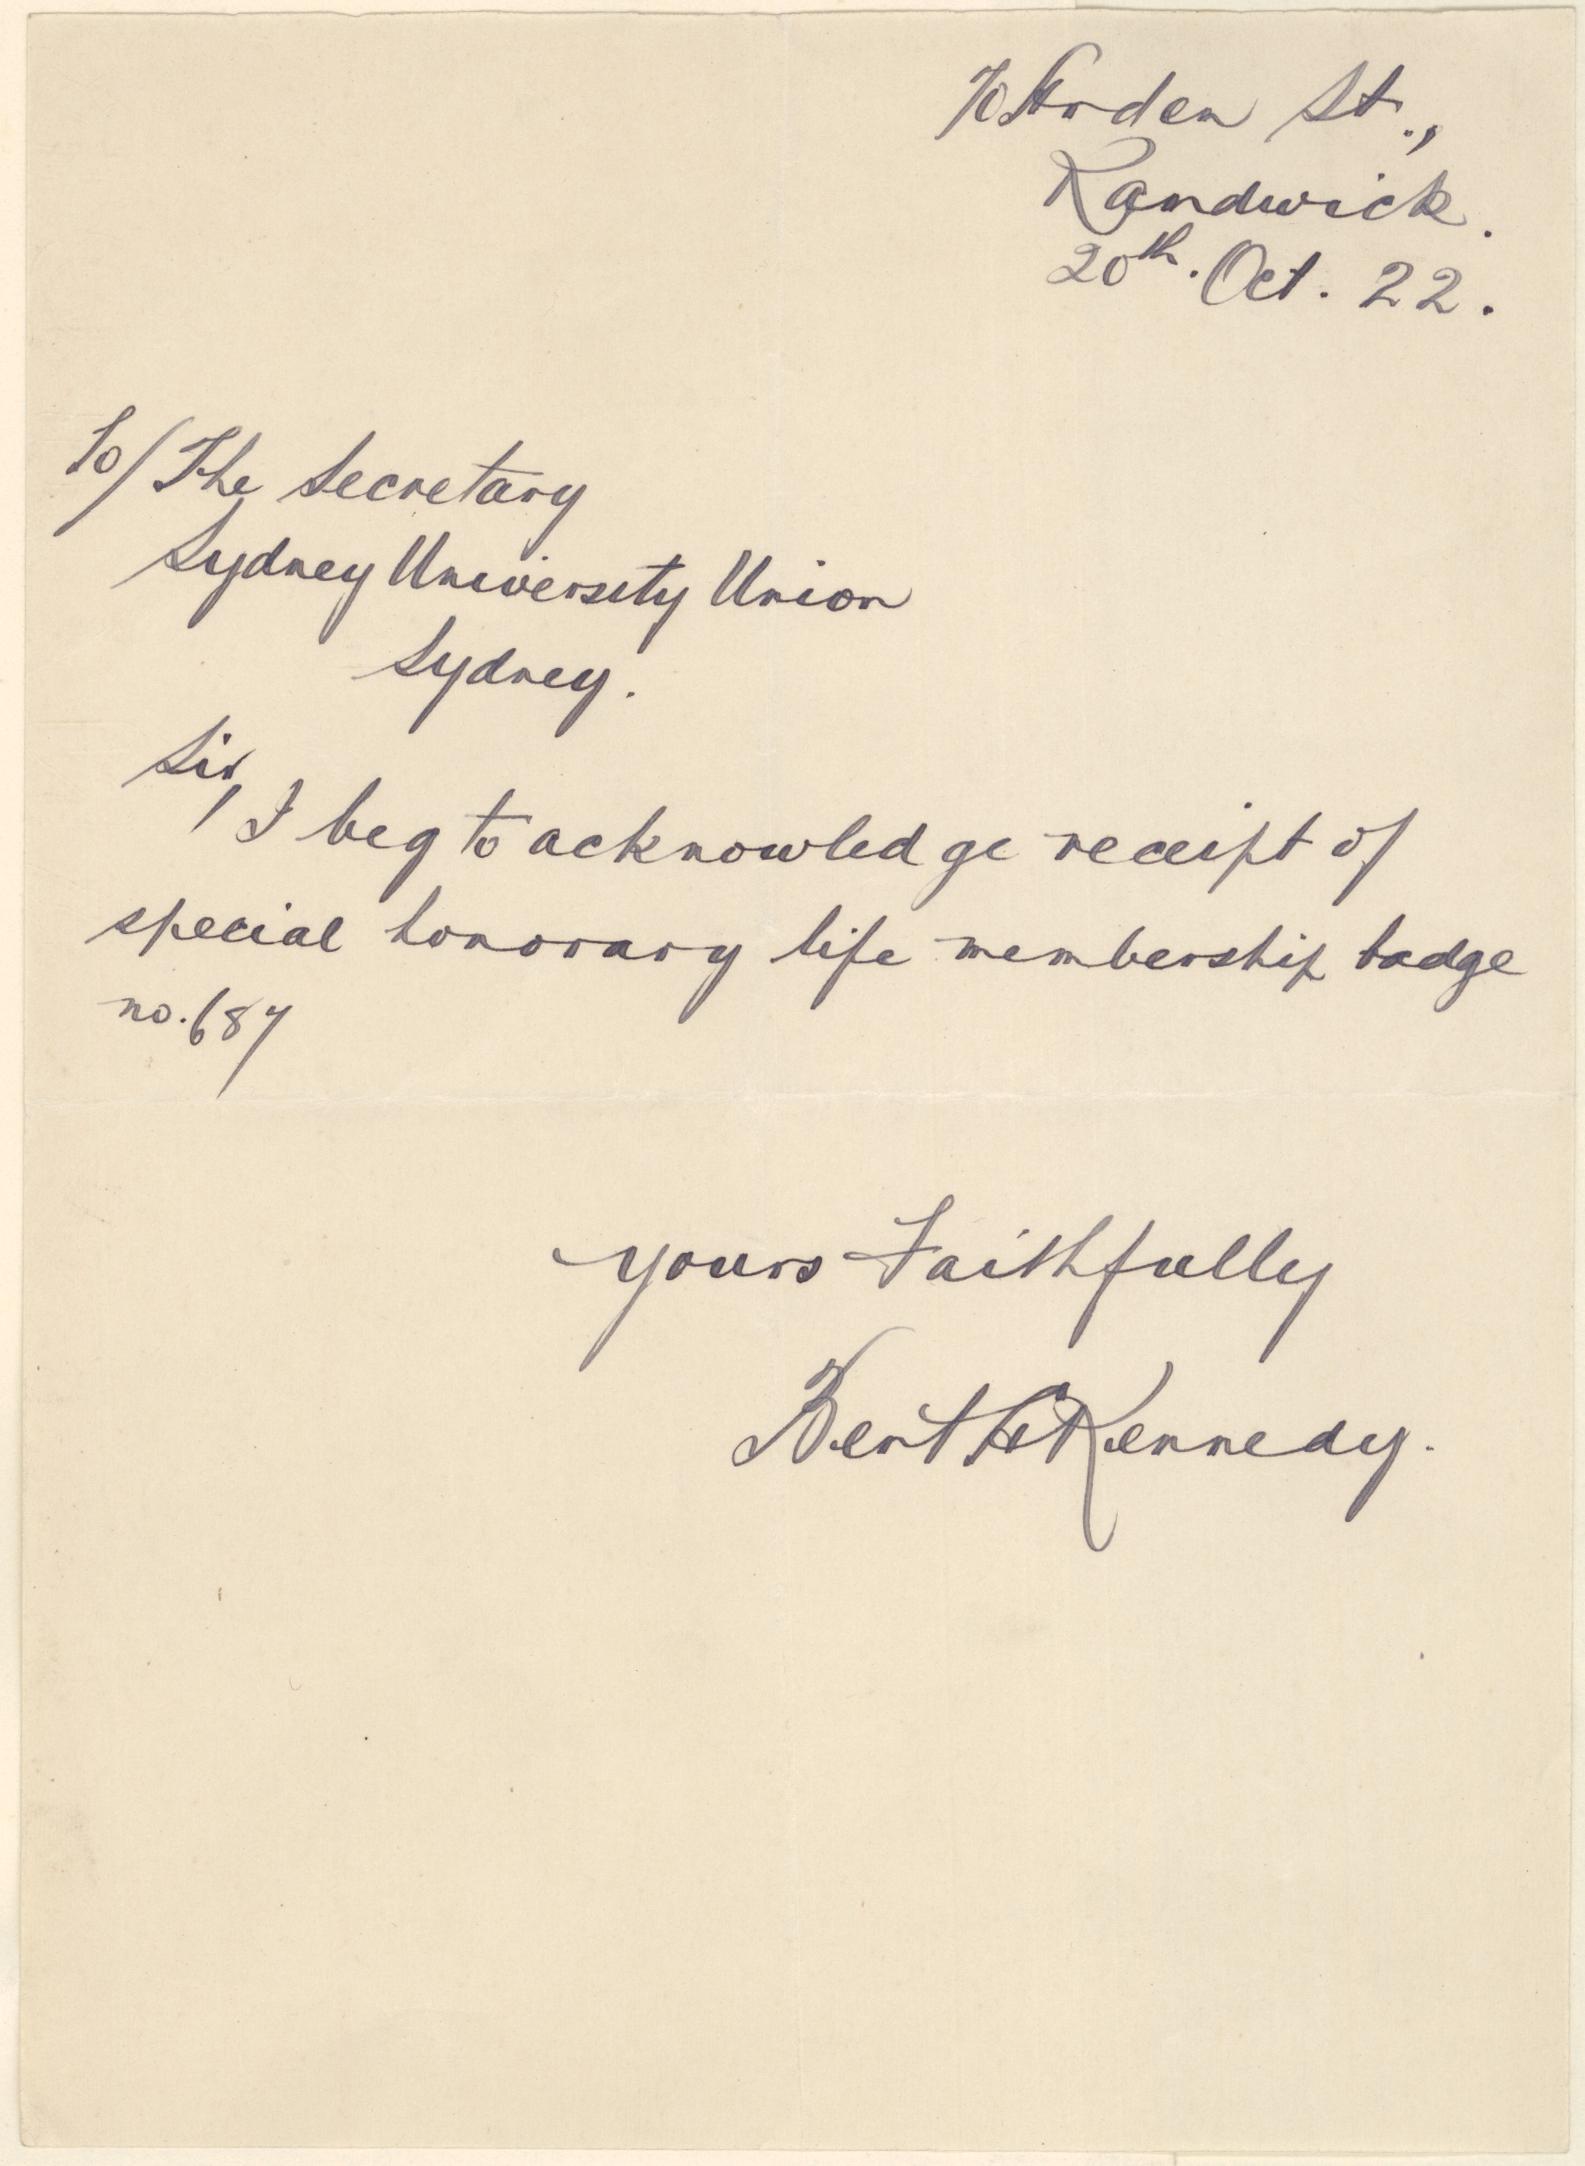 70 Arden St.,
Randwick.
20th. Oct. 22.
To/The Secretary
Sydney University Union
Sydney.
Sir,
I beg to acknowledge receipt of
special honorary life membership badge
no. 687
Yours Faithfully
Bert Kennedy.